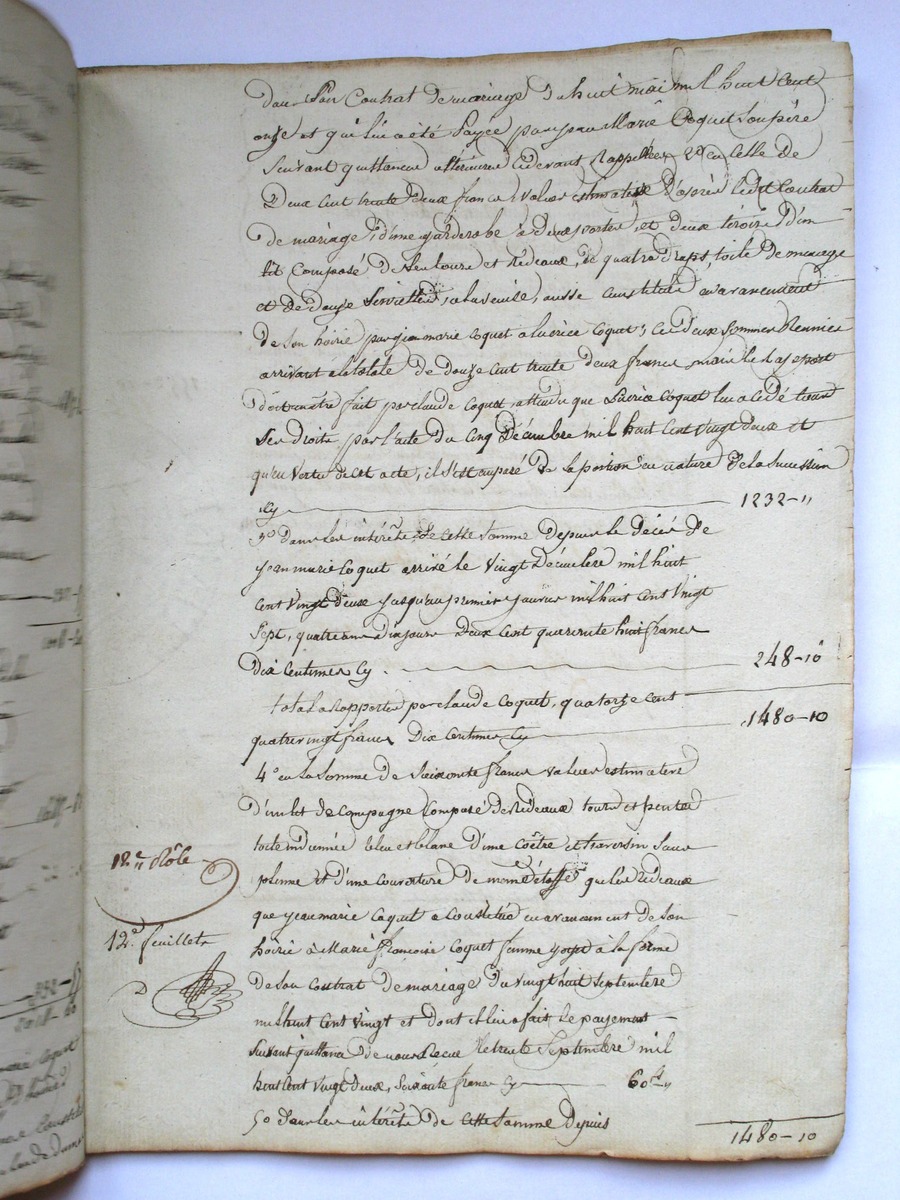 dans son Contrat de mariage du huit mai mil huit cent
onze et qui lui a été payée par jean Marie Coquet son père
Suivant quittances ultérieures cidevant Rappellées, et en celle de
Deux Cent trente deux francs, valeur estimative D'après ledit Contrat
de mariage, d'une garderobe à deux portes, et deux tiroirs, d'un
lit Composé de Ses tours et Rideaux, de quatre draps, toile de menage
et de douze Serviettes, aussi Constitué en avancement
de son hoirie par jean marie Coquet à Lucrèce Coquet; Ces deux Sommes Réunies
arrivant au total de douze cent trente deux francs, mais le Rapport
doit en être fait par claude Coquet, attendu que Lucrèce Coquet lui a cédé tous
Ses droits par l'acte du Cinq Décembre mil huit Cent vingt deux et
qu'en vertu de cet acte, il s'est emparé de la portion en nature de la Succession
Cy 1232-"
3° dans les intérêts de Cette Somme Depuis le Décès de
Jean marie Coquet arrivé le Vingt Décembre mil huit
Cent Vingt deux jusqu'au premier janvier mil huit Cent Vingt
Sept, quatre ans dix jours Deux Cent quarente huit francs
Dix Centimes Cy 248-10
total à Rapporter par claude Coquet, quatorze Cent
quatre vingt francs Dix Centimes Cy 1480-10
4° en la Somme de Soixante francs valeur estimative
d'un lit de Campagne Composé de Rideaux tours et pentes
toile indienne bleu et blanc d'une Coëtre et traversin Sans
plume et d'une couverture de même étoffe que les Rideaux
que jean marie Coquet a Constitué en avancement de Son
hoirie à Marie françoise Coquet femme à la forme
de Son Contrat de mariage du vingt huit Septembre
mil huit Cent vingt et dont il lui a fait le payement
Suivant quittance de nous Reçue le trente Septembre mil
huit Cent Vingt deux, Soixante francs Cy 60f "
5° dans les intérêts de cette Somme Depuis
1480-10
12e Rôle
12e feuillet